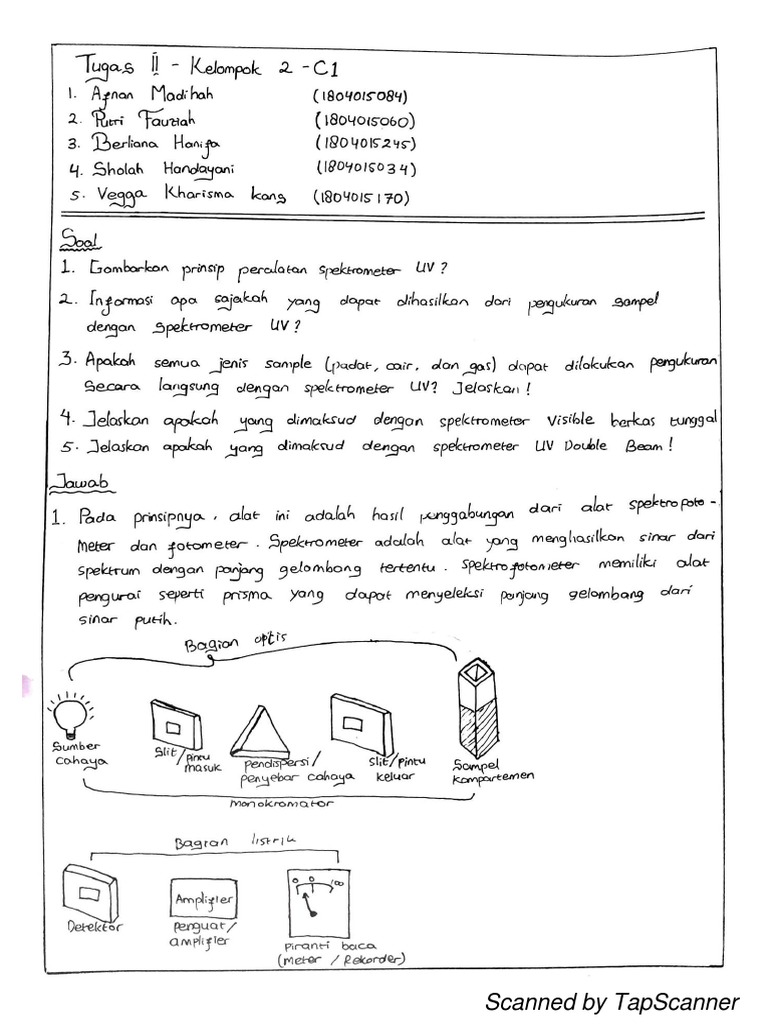 Tugas II - Kelompok 2 - C1
1. Afnan Madihah (1804015084)
2. Putri Fauziah (1804015060)
3. Berliana Hanifa (1804015245)
4. Sholah Handayani (1804015034)
5. Vegga Kharisma kans (1804015170)
Soal
1. Gambarkan prinsip peralatan spektrometer UV?
2. Informasi apa sajakah yang dapat dihasilkan dari pengukuran sampel
dengan spektrometer UV?
3. Apakah semua jenis sample (padat, cair, dan gas) dapat dilakukan pengukuran
Secara langsung dengan spektrometer UV? Jelaskan!
4. Jelaskan apakah yang dimaksud dengan spektrometer Visible berkas tunggal
5. Jelaskan apakah yang dimaksud dengan spektrometer UV Double Beam!
Jawab
1. Pada prinsipnya, alat ini adalah hasil penggabungan dari alat spektrofoto-
meter dan fotometer. Spektrometer adalah alat yang menghasilkan sinar dari
spektrum dengan panjang gelombang tertentu. Spektrofotometer memiliki alat
pengurai seperti prisma yang dapat menyeleksi panjang gelombang dari
sinar putih.
Bagian optis
Sumber
cahaya
Slit/pintu
masuk
pendispersi/
penyebar cahaya
Slit/pintu
keluar
Sampel
kompartemen
monokromator
Bagian listrik
Detektor
Amplifier
penguat/
amplifier
0 0 100
Piranti baca
(meter / Rekorder)
Scanned by TapScanner